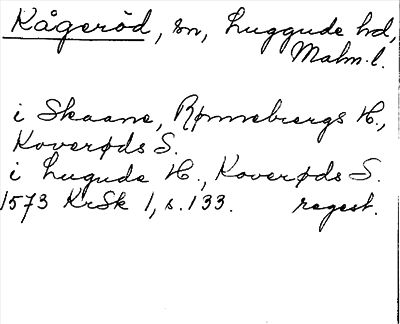 Kågeröd, sn, Luggude hd,
Malm.l.
i Skaane, Rønnebergs H.,
Koverøds S.
i Lugude H., Koverøds S.
1573 KrSk 1, s. 133. regest.